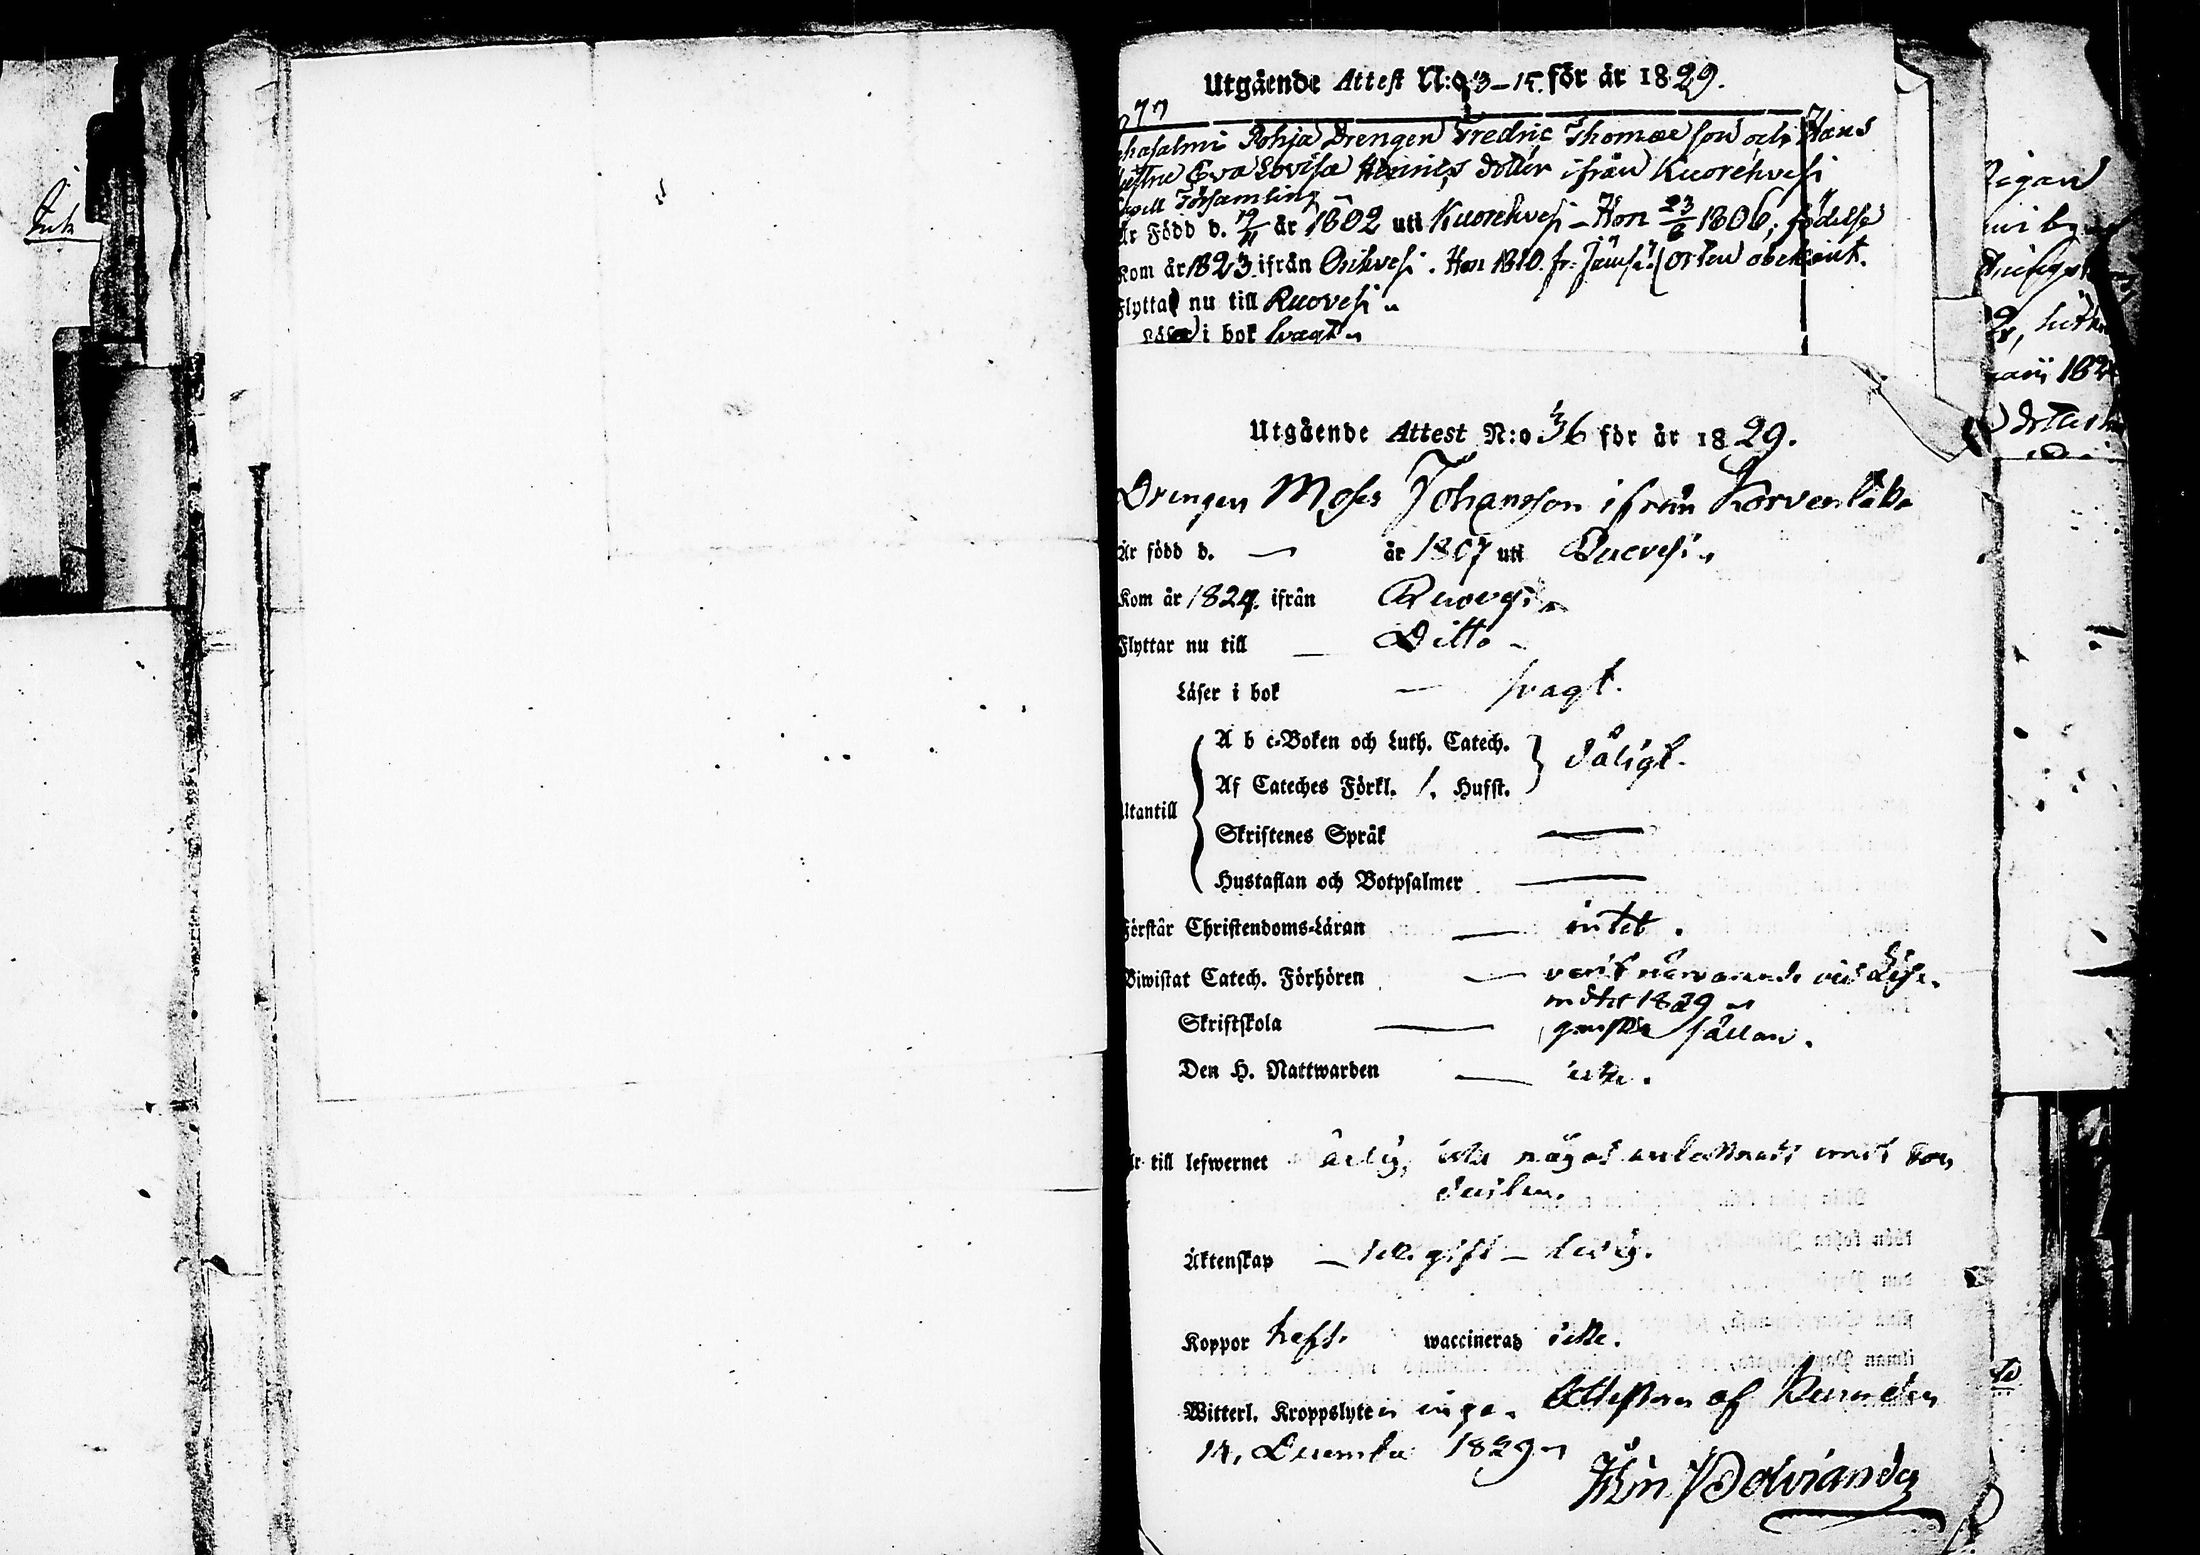 Utgående Attest N:o 13–15. för år 1829.
Pohja Drengen Fredric Thomae son och Hans
Hustru Eva Lovisa Henrics dotter ifrån Kuorehvesi
Capell Församling
Är Född d. 19/11 år 1802 uti Kuorehvesi – Hon 23/6 1806, födelse
Kom år 1823 ifrån Orihvesi. Hon 1810. fr. Jämsä. (orten obekant.
Flyttar nu till Ruovesi
Läser i bok svagt
Utgående Attest N:o 36 för år 1829.
Drengen Moses Johansson ifrån
Är född d. — år 1807 uti Ruovesi
Kom år 1829. ifrån Ruovesi
Flyttar nu till — Ditto –
Läser i bok — svagt.
A b c-Boken och Luth. Catech.
dåligt.
Af Cateches Förkl. 1. Husst.
Utantill
Skriftenes Språk —
Hustaflan och Botpsalmer —
Förstår Christendoms-Läran — intet.
Biwistat Catech. Förhören — varit närvarande vid Läse-
mötet 1829
Skriftskola — ganska sällan.
Den H. Nattwarden — icke.
Är till lefwernet ärlig, icke något anteknadt emot
Äktenskap — ill. gift – ledig.
Koppor haft. waccinerad icke.
Witterl. Kroppslyten inga. Attesteras af
14. December 1829